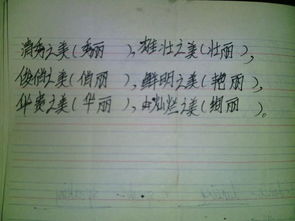 清秀之美(秀丽),雄壮之美(壮丽),
俊俏之美(俏丽),鲜明之美(艳丽),
华贵之美(华丽),灿烂之美(绚丽)。